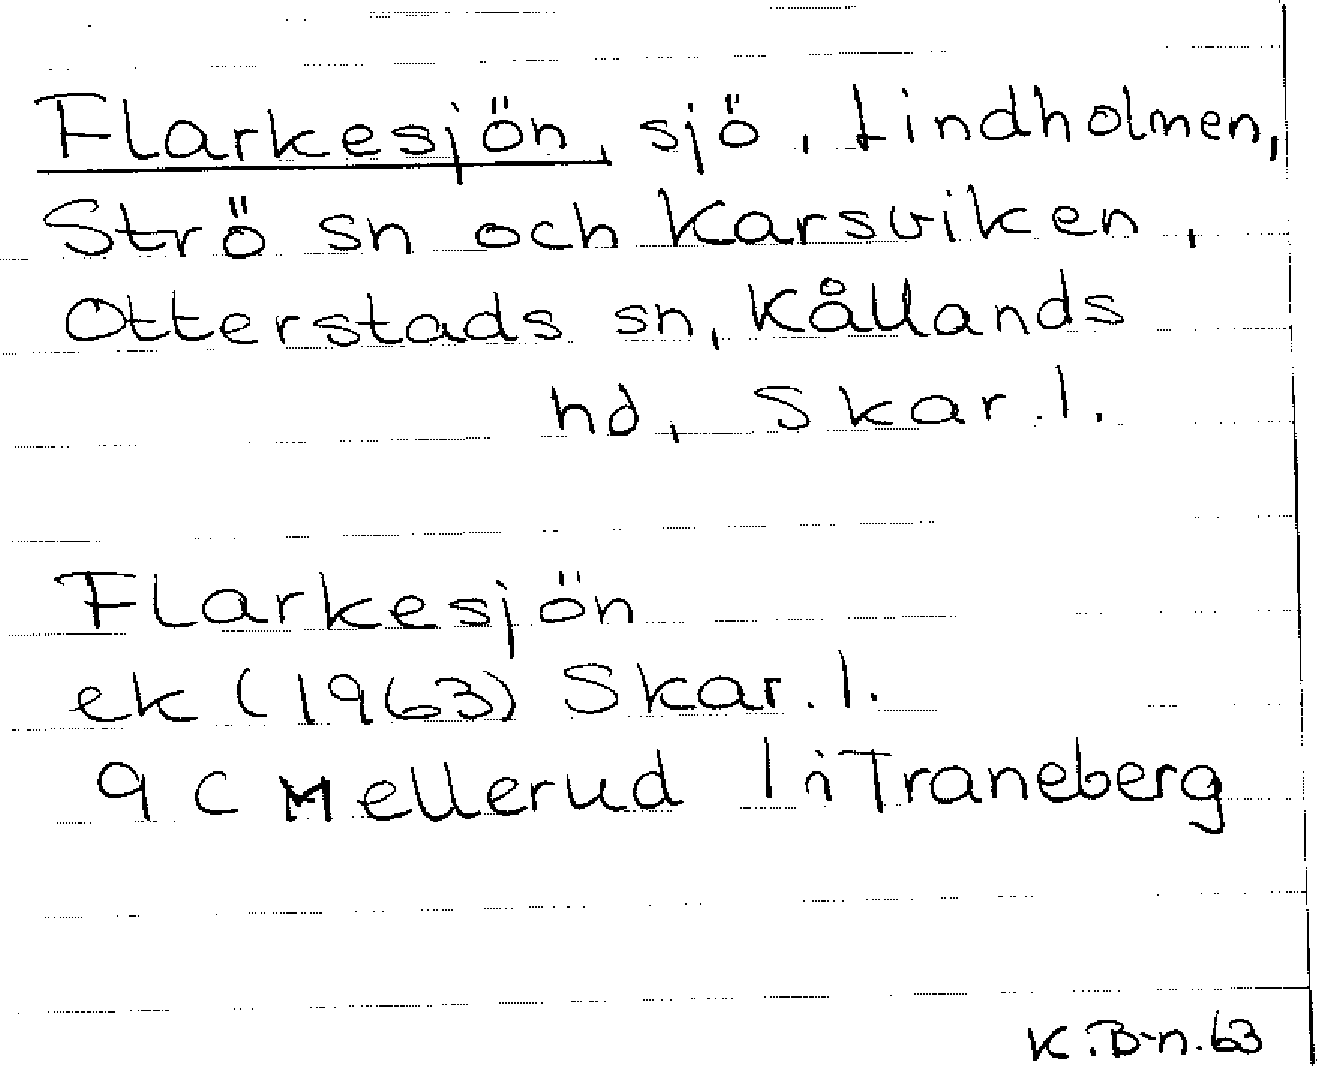 Flarkesjön, sjö, Lindholmen,
Strö sn och Karsviken,
Otterstads sn, Kållands
hd, Skar. l.
Flarkesjön
ek (1963) Skar. l.
9 C Mellerud Traneberg
K.B-n.63